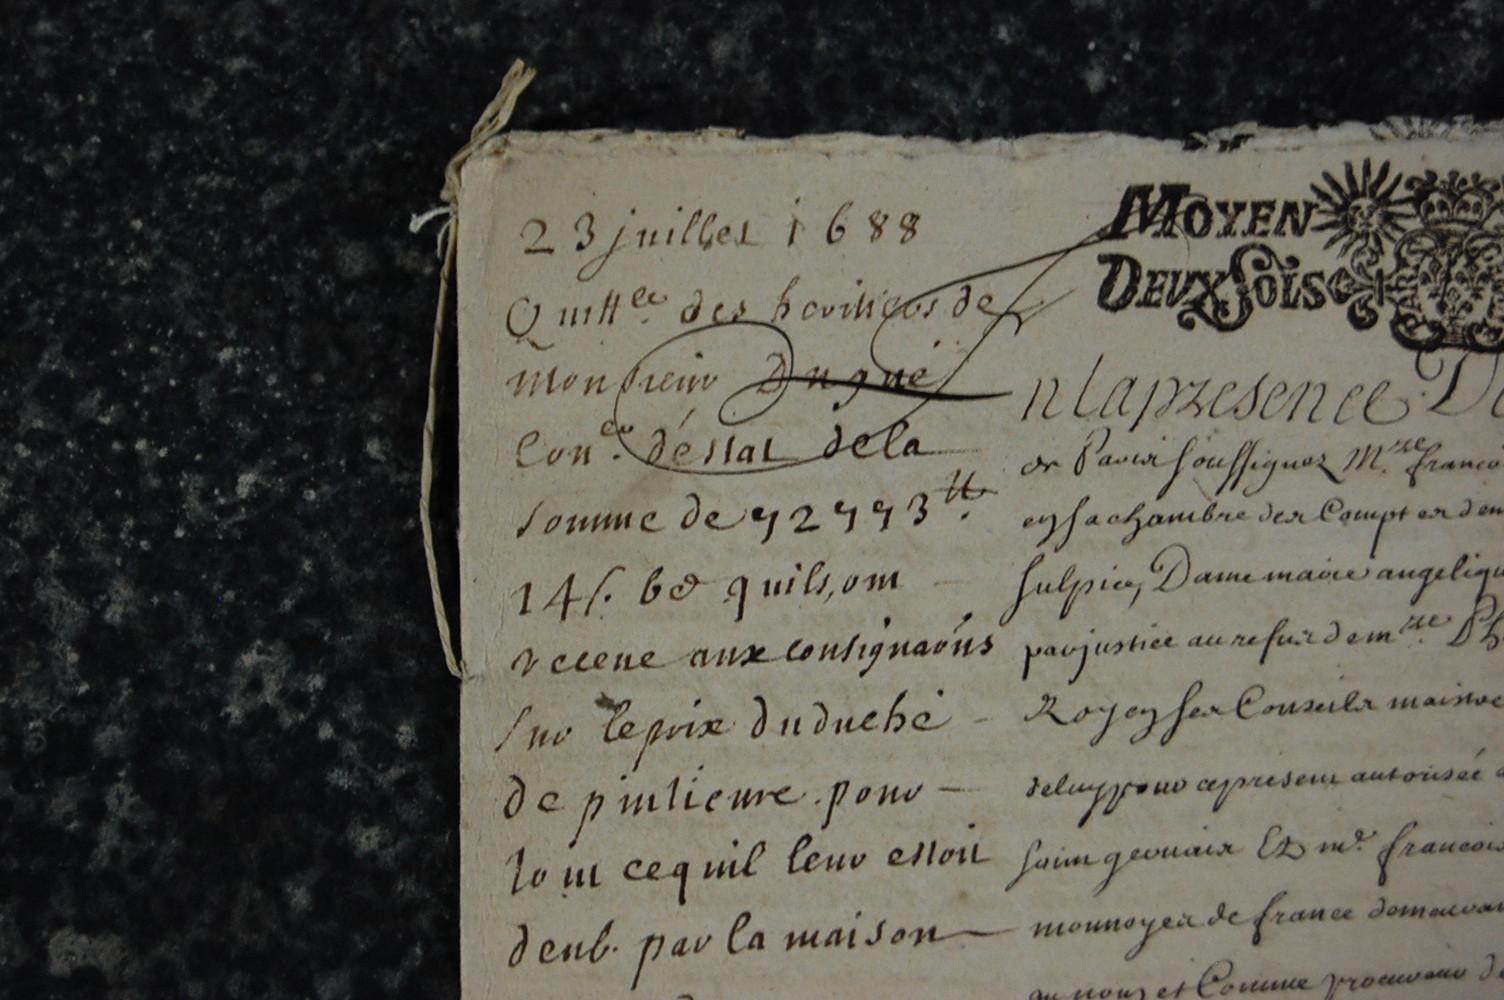 23 juillet 1688
Quitt.ce des heritiers de
monsieur Dugué
Con.er d'éstat de la
somme de 72773tt.
14s. 6d quils, ont
receue aux consignaõns
sur le prix du duché
de pintieure. pour
tout ce quil leur estoit
deub. par la maison
MOYEN
DEUX SOLS
n la presence De
de Paris soussignez M.re franco
en sa chambre des Comptes dem
sulpice, Dame marie angeliqu
par justice au refus de m.re Ph
Roy en ses Conseils maistre
de luy pour ce present autorisée a
saint geruais Et m.e francois
monnoyes de france demeuran
au nom et Comme procureur de